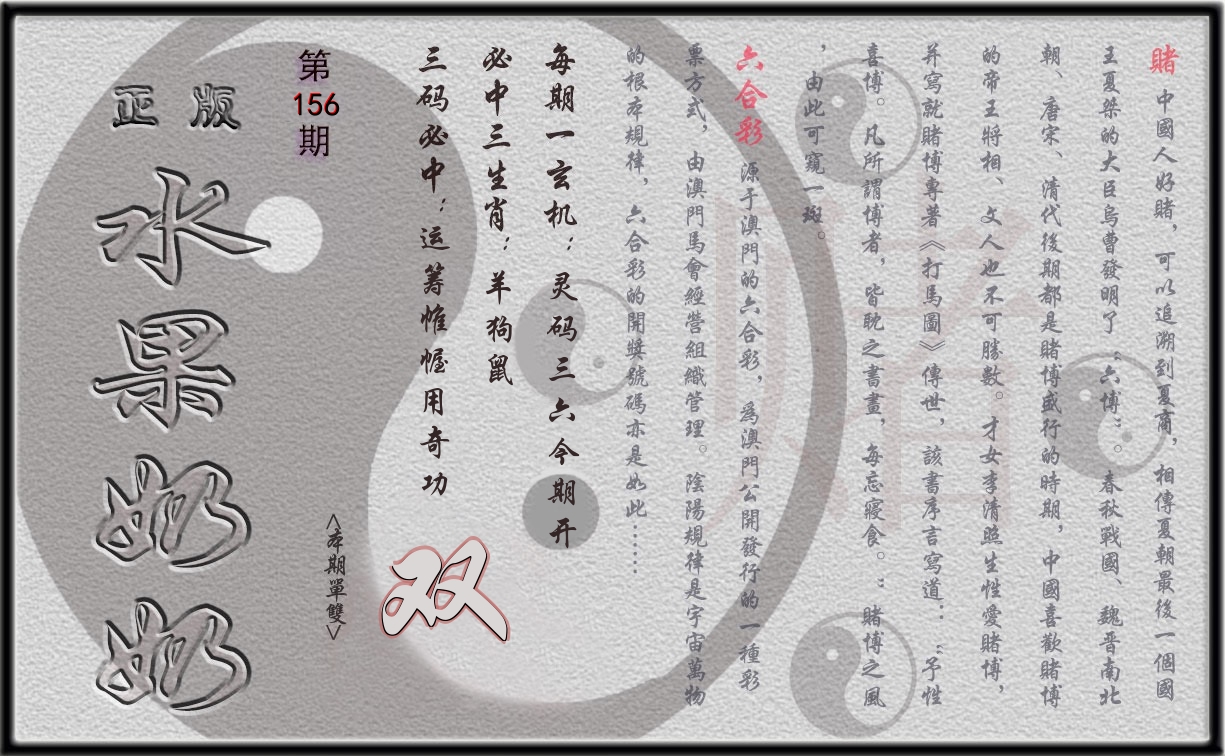 賭 中國人好賭，可以追溯到夏商，相傳夏朝最後一個國
王夏桀的大臣烏曹發明了“六博”。春秋戰國、魏晋南北
朝、唐宋、清代後期都是賭博盛行的時期，中國喜歡賭博
的帝王將相、文人也不可勝數。才女李清照生性愛賭博，
并寫就賭博專著《打馬圖》傳世，該書序言寫道：“予性
喜博。凡所謂博者，皆耽之書畫，每忘寢食。：賭博之風
，由此可窺一斑。
六合彩 源于澳門的六合彩，為澳門公開發行的一種彩
票方式，由澳門馬會經營組織管理。陰陽規律是宇宙萬物
的根本規律，六合彩的開獎號碼亦是如此……
每期一玄机：灵码三六今期开
必中三生肖：羊狗鼠
三码必中：运筹惟幄用奇功
双
<本期單雙>
第
156
期
正版
水果奶奶
賭